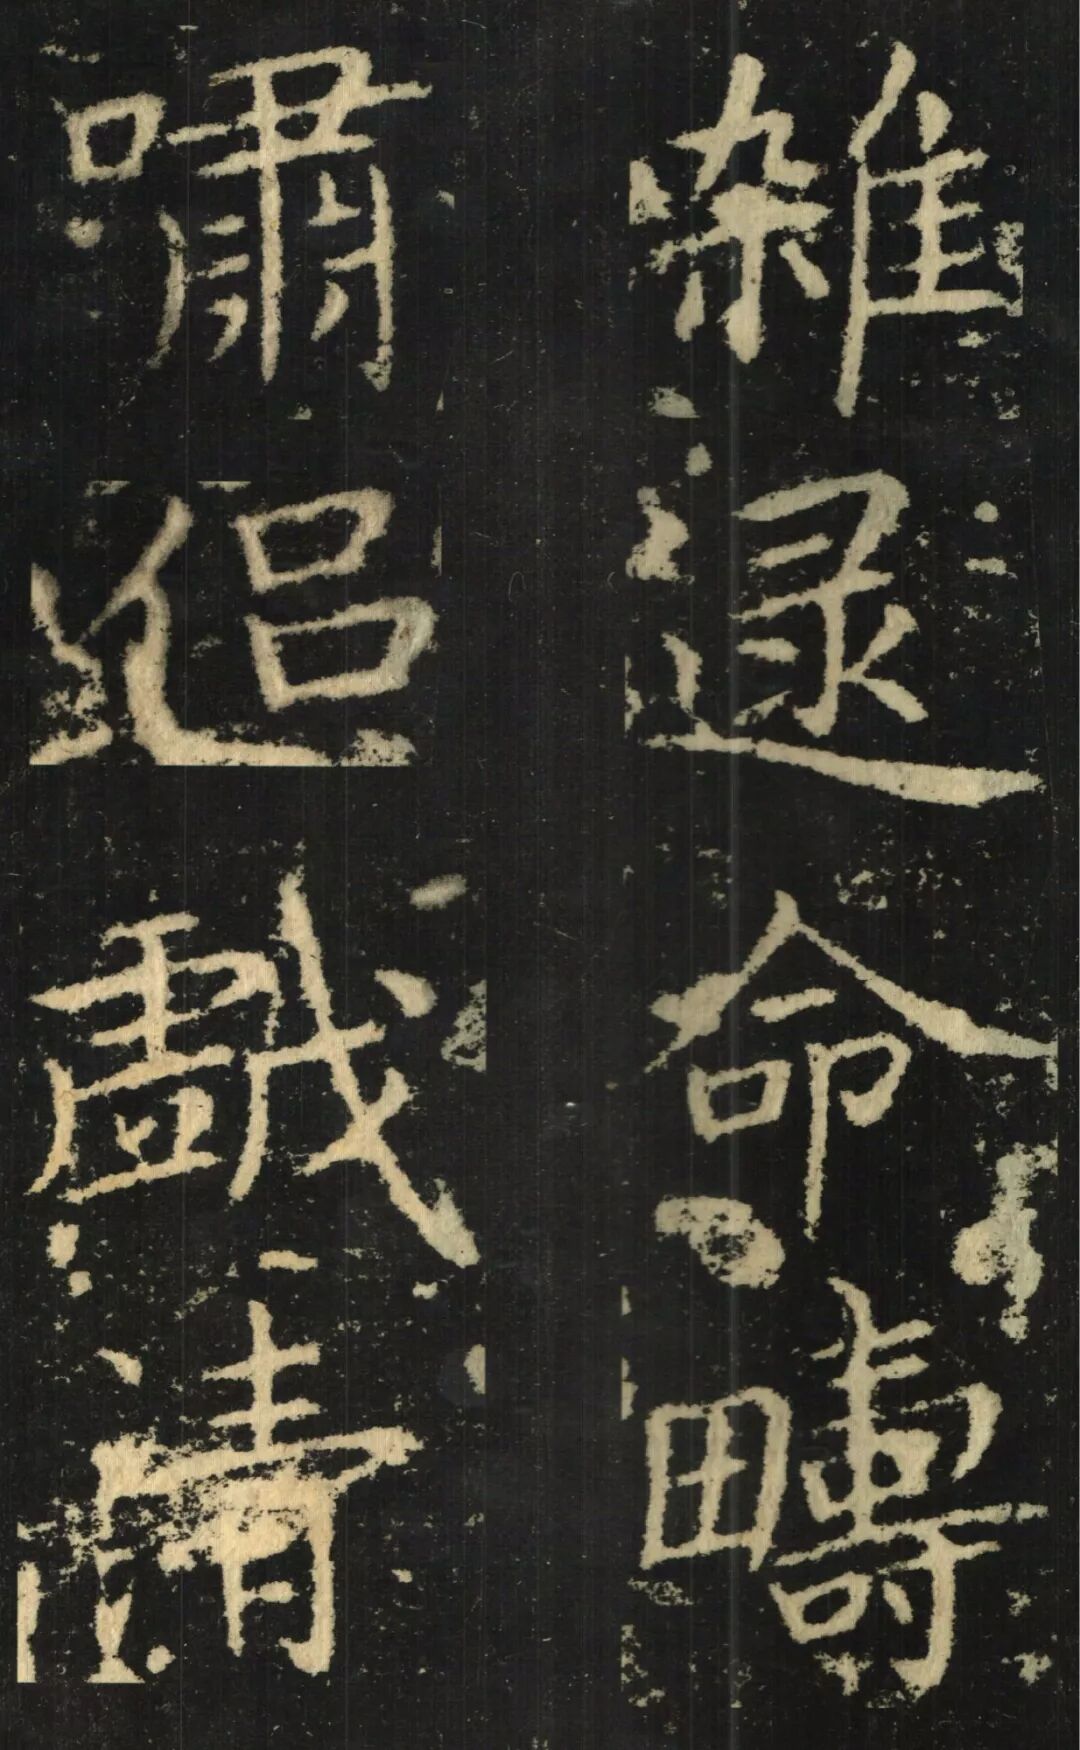 雜遝命疇
嘯侶戲清